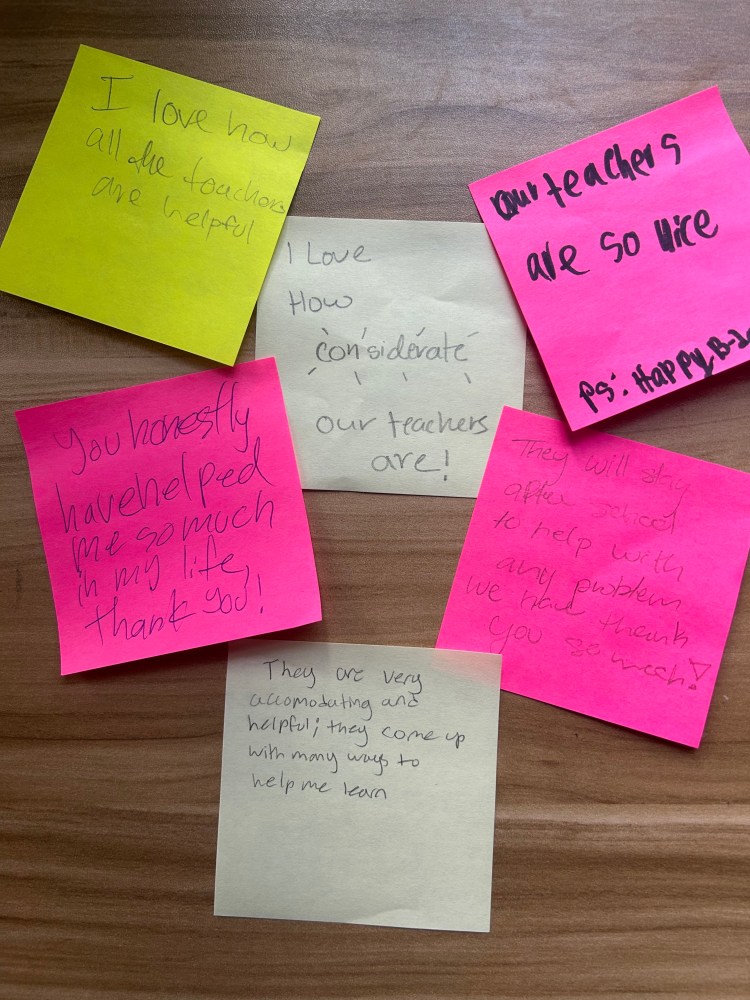 I love how
all the teachers
are helpful
our teachers
are so nice
ps: Happy B-
I Love
How
considerate
our teachers
are!
You honestly
have helped
me so much
in my life,
thank you!
They will stay
after school
to help with
any problem
we have thank
you so much!
They are very
accomodating and
helpful; they come up
with many ways to
help me learn